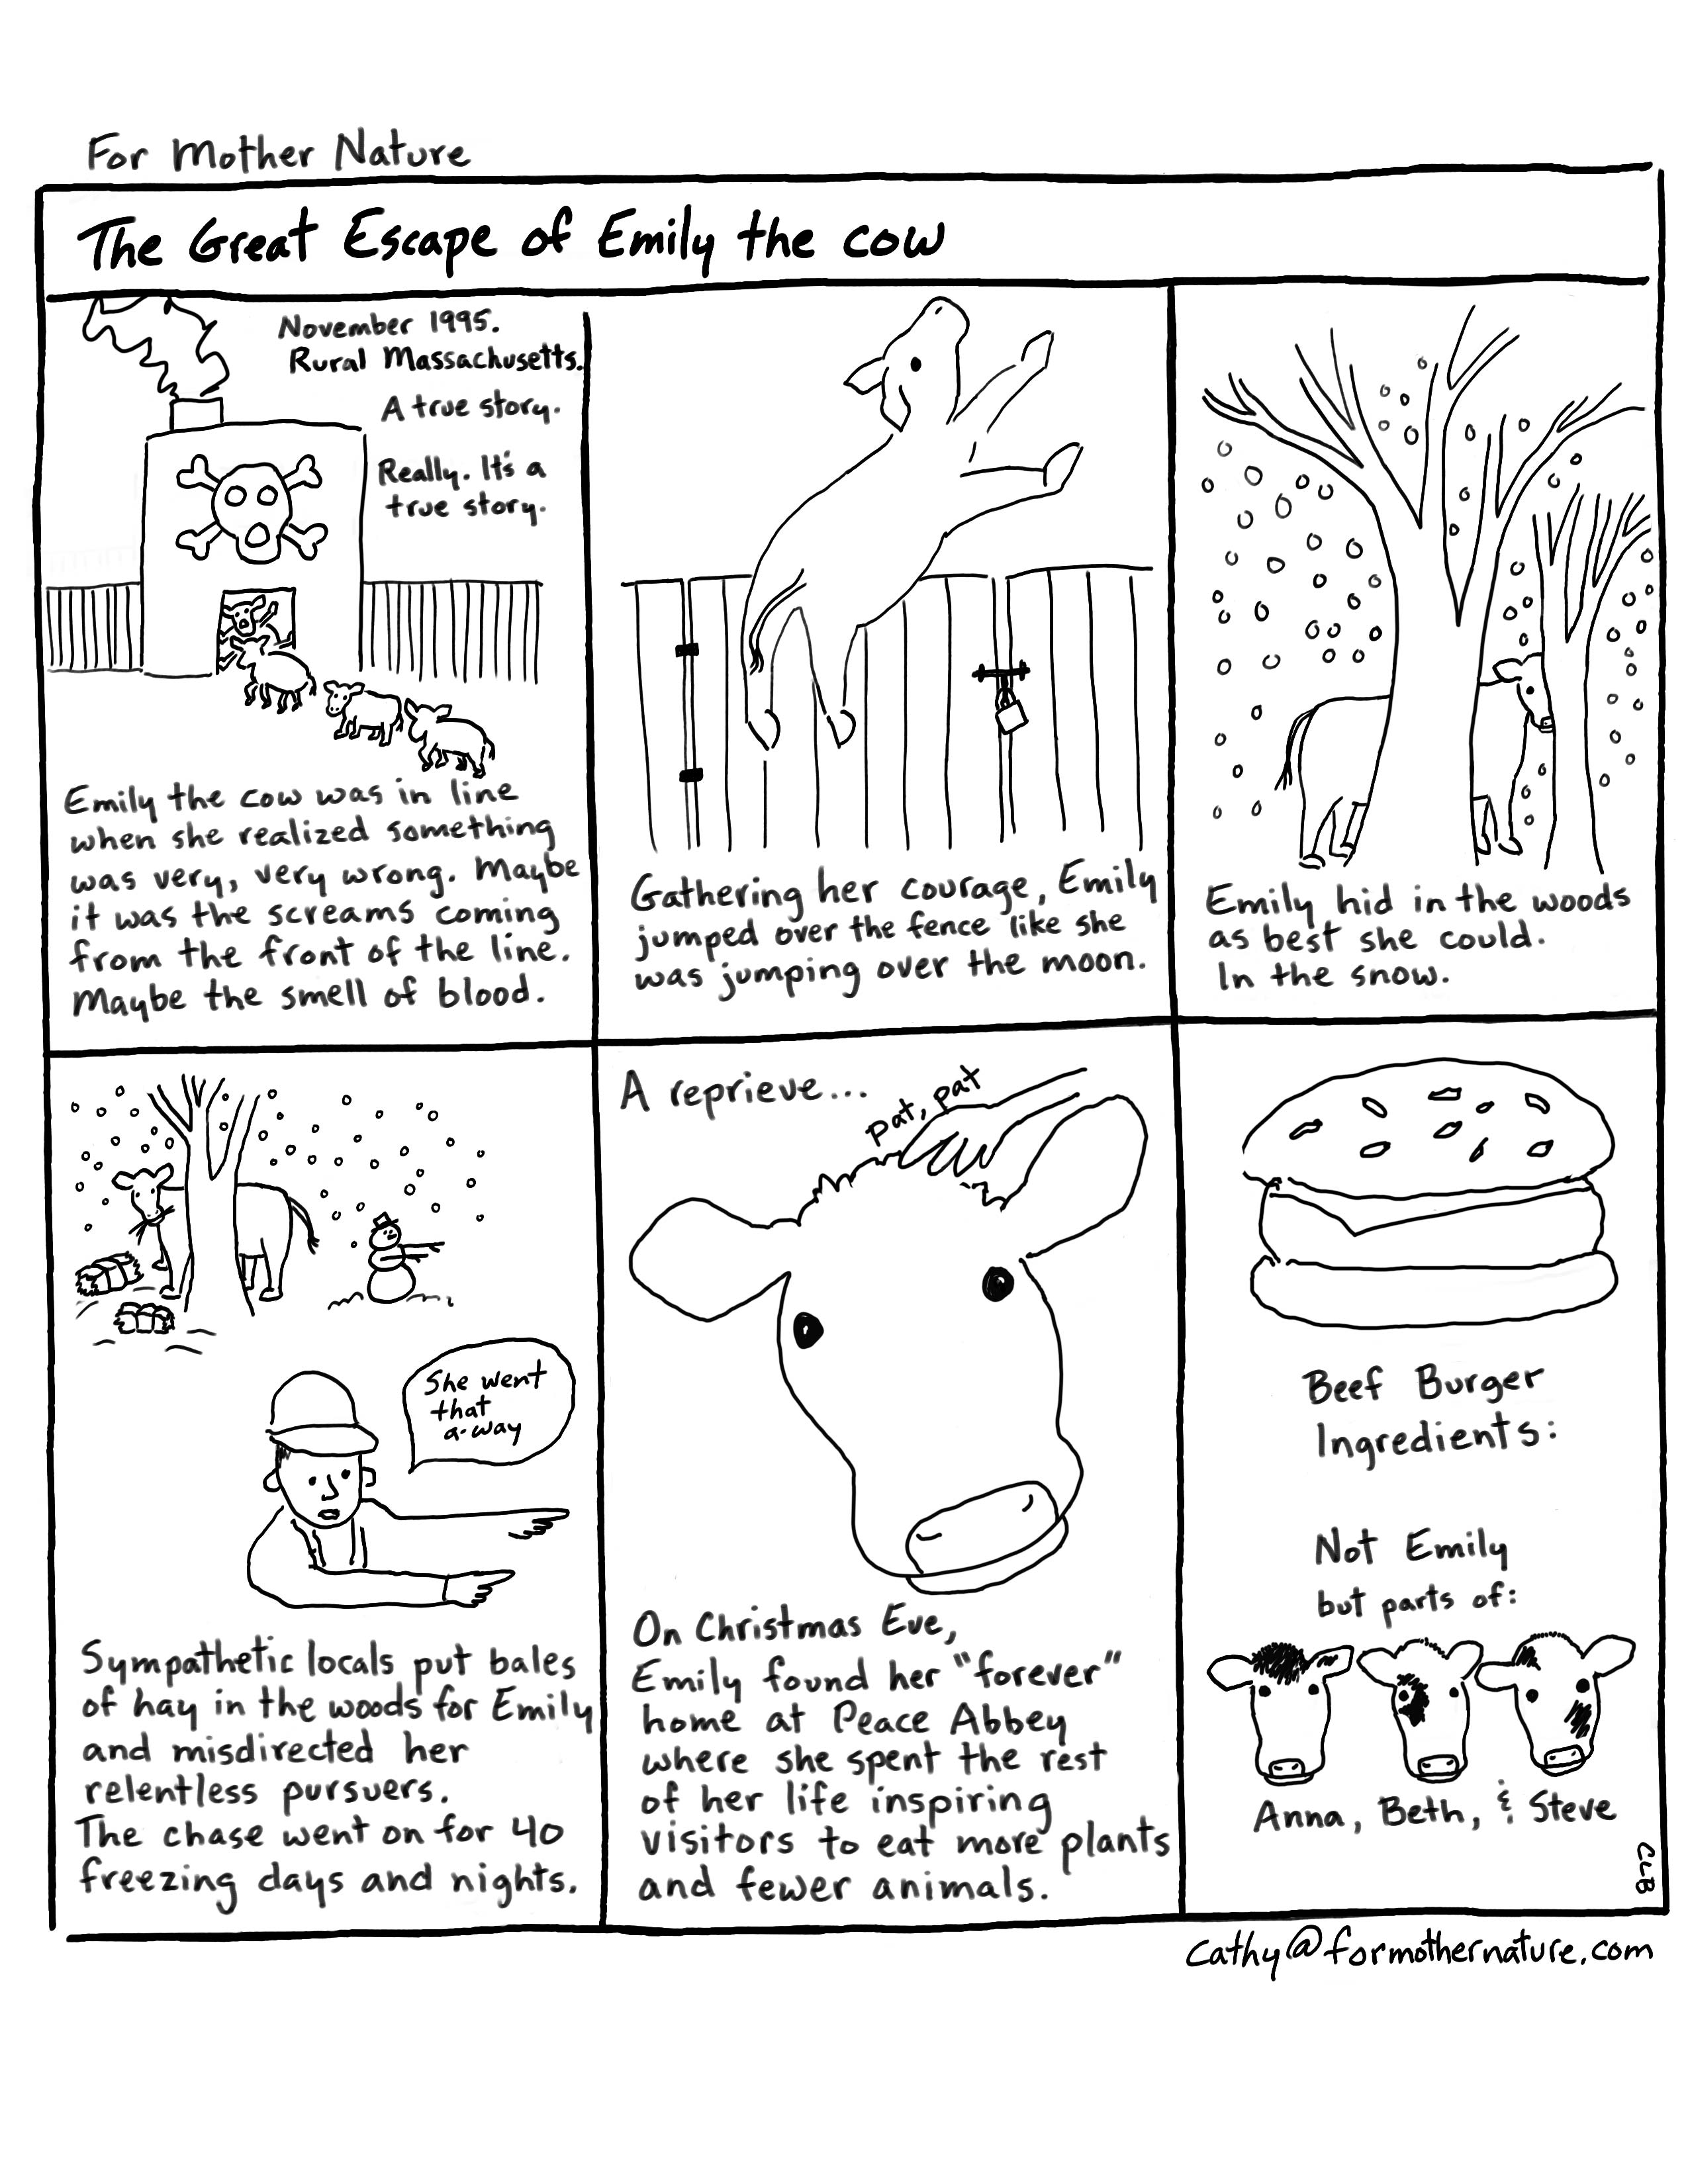 For Mother Nature
The Great Escape of Emily the cow
November 1995.
Rural Massachusetts.
A true story.
Really. It's a
true story.
Emily the cow was in line
when she realized something
was very, very wrong. Maybe
it was the screams coming
from the front of the line.
Maybe the smell of blood.
Gathering her courage, Emily
jumped over the fence like she
was jumping over the moon.
Emily hid in the woods
as best she could.
In the snow.
She went
that
a-way
Sympathetic locals put bales
of hay in the woods for Emily
and misdirected her
relentless pursuers.
The chase went on for 40
freezing days and nights.
A reprieve...
pat, pat
On Christmas Eve,
Emily found her "forever"
home at Peace Abbey
where she spent the rest
of her life inspiring
visitors to eat more plants
and fewer animals.
Beef Burger
Ingredients:
Not Emily
but parts of:
Anna, Beth, & Steve
CLB
cathy@formothernature.com